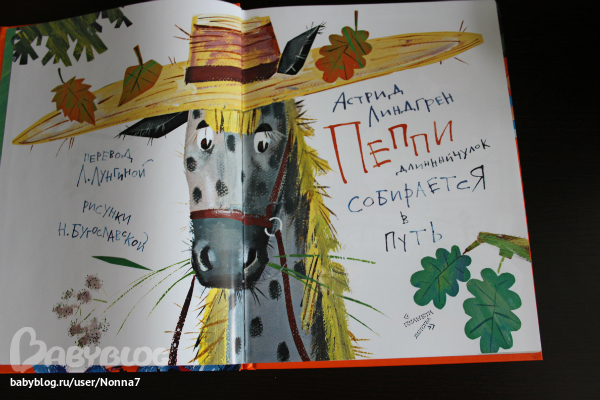 перевод
Л. Лунгиной
рисунки
Н. Бугославской
Астрид
Линдгрен
ПЕППИ
длинныйчулок
собирается
в
путь
BABYBLOG
babyblog.ru/user/Nonna7